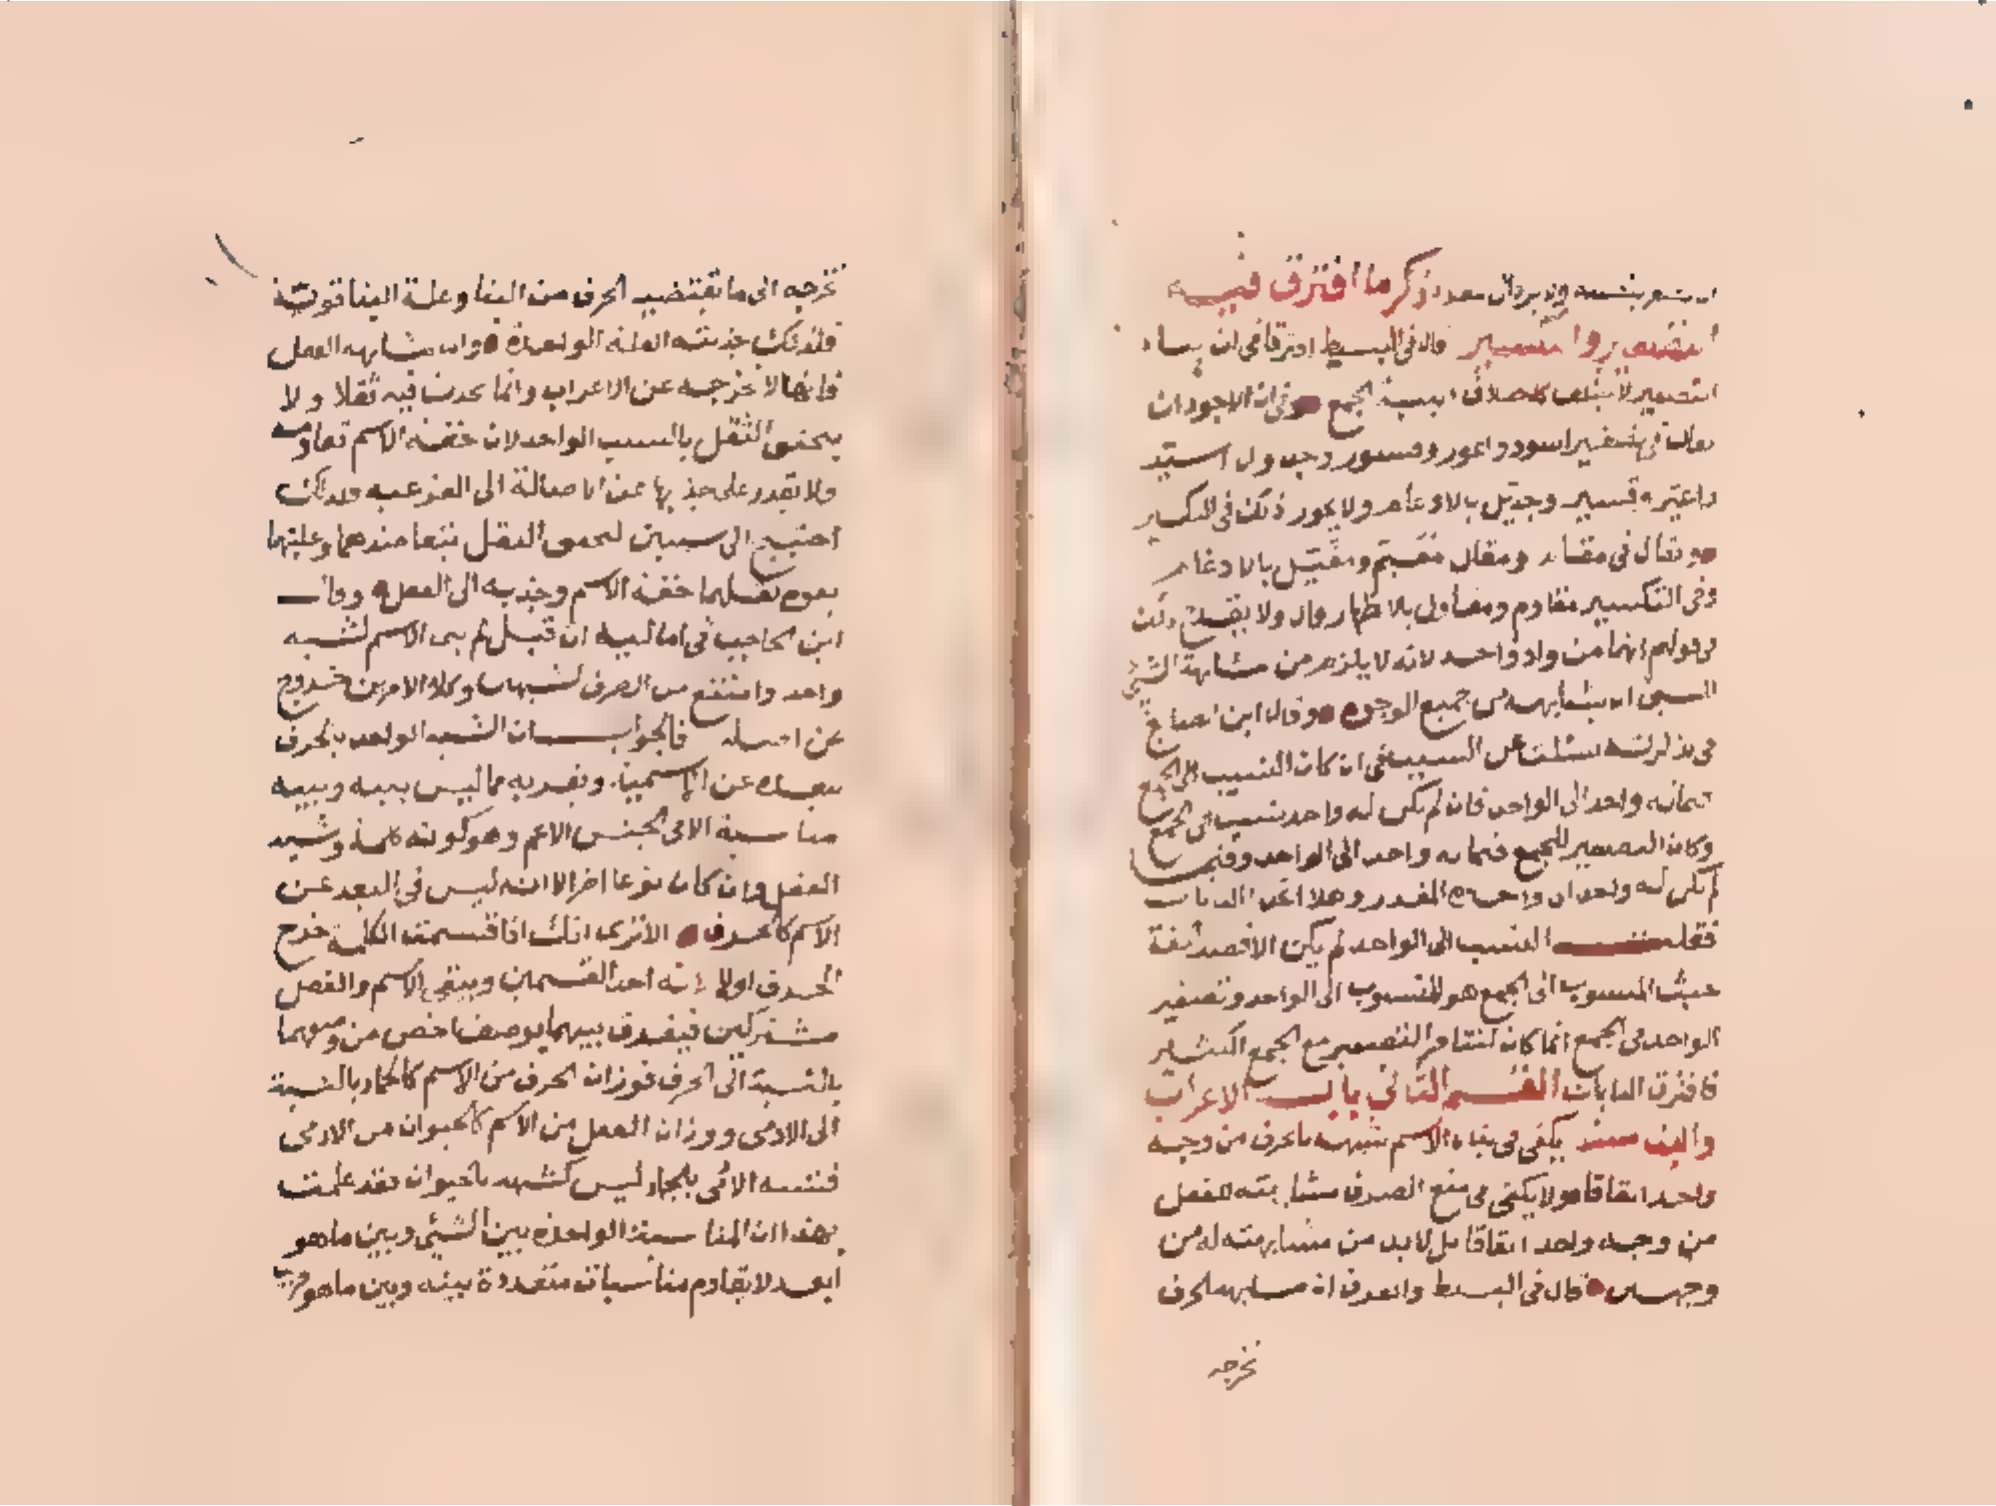 ذكر ما افترق فيه
التصغير والتكسير قال في البسيط افترقا في ان بناء
التصغير لا يختلف كاختلاف ابنية الجمع وفي ان الاجود ان
يقال في تصغير اسود واعور وقسور وجدول اسيد
واعير وقسير وجديل بالادغام ولا يجوز ذلك في التكسير
ويقال في مقام ومقال مقيم ومقيل بالادغام
وفي التكسير مقاوم ومقاول بالاظهار قال ولا يقدح ذلك
في قولهم انهما من واد واحد لانه لا يلزم من مشابهة الشي
الشي ان يشابهه من جميع الوجوه وقال ابن الصايغ
في تذكرته سئلت عن السبب في ان كان النسب الى الجمع
ان له واحد الى الواحد فان لم يكن له واحد نسب الى الجمع
وكان التصغير للجمع فيما له واحد الى الواحد وفيما
لم يكن له واحد الى واحده المقدر وهلا اتحد البابان
فقلت النسب الى الواحد لم يكن الا قصد الخفة
حيث المنسوب الى الجمع هو المنسوب الى الواحد وتصغير
الواحد في الجمع انما كان لتنافر التصغير مع الجمع الكثير
فافترق البابان القسم الثاني باب الاعراب
والبناء مسئلة يكفي في بناء الاسم شبهه بالحرف من وجه
واحد اتفاقا ولا يكفي في منع الصرف مشابهته للفعل
من وجه واحد اتفاقا بل لابد من مشابهته له من
وجهين قال في البسيط والفرق ان مشابهة الحرف
تخرجه
تخرجه الى ما يقتضيه الحرف من البنا وعلة البنا قوية
فلذلك جذبته العلة الواحدة واما مشابهة الفعل
فانها لا تخرجه عن الاعراب وانما تحدث فيه ثقلا ولا
يتحقق الثقل بالسبب الواحد لان خفة الاسم تقاومه
ولا يقدر على جذبها عن الاصالة الى الفرعيه فلذلك
احتيج الى سببين لتحقق الثقل بتعاضدهما وغلبتهما
بقوة نقلهما خفة الاسم وجذبه الى الفعل وقال
ابن الحاجب في اماليه ان قيل لم بني الاسم لشبه
واحد وامتنع من الصرف لشبهين وكلا الامرين خروج
عن اصله فالجواب ان الشبه الواحد بالحرف
يبعده عن الاسمية ويقربه مما ليس بينه وبينه
مناسبة الا في الجنس الاعم وهو كونه كلمة وشبه
الفعل وان كان نوعا اخر الا انه ليس في البعد عن
الاسم كالحرف الا ترى انك اذا قسمت الكلمة خرج
الحرف اولا لانه احد القسمين ويبقى الاسم والفعل
مشتركين فيفرق بينهما بوصف اخص من وصفهما
بالنسبة الى الحرف فوزان الحرف من الاسم كالجماد بالنسبة
الى الادمي ووزان الفعل من الاسم كالحيوان من الادمي
فشبه الادمي بالجماد ليس كشبهه بالحيوان فقد علمت
بهذا ان المناسبة الواحدة بين الشي وبين ما هو
ابعد لا تقاوم مناسبات متعددة بينه وبين ما هو قريب